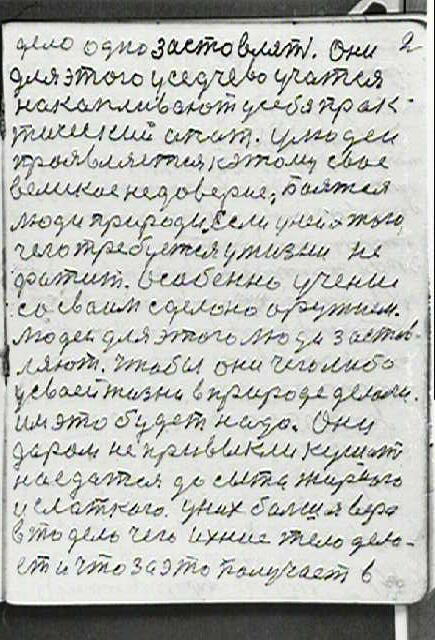 дело одно заставлят. Они 2
для этого уседчево учатся
накапливают у себя прак-
тический опат. У людеи
проявляется к этому свое
великое недоверие, боятся
люди природи. Если у неи этого,
чего требуется у жизни не
фатит. особенно учение
со сваим сделоно оружием.
Людеи для этого люди застав-
ляют. чтобы они чеголибо
у сваеи жизни в природе делали.
им это будет надо. Они
даром не привыкли кушат
наедатся до сыта жирного
и слаткого. у них болшая вера
в то дело чего ихние тело дело-
ет и что за это получает в